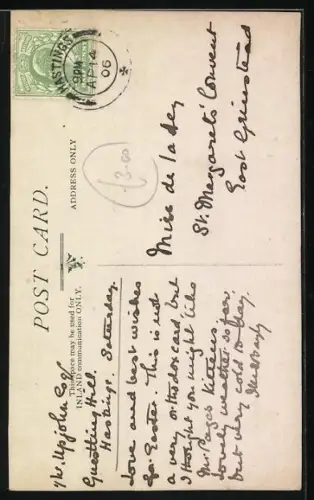 POST CARD.
This space may be used for
INLAND communication ONLY.
ADDRESS ONLY
HASTINGS
9 PM
AP 14
06
£3.00
Miss de la Hey
St. Margarets' Convent
East Grinstead
Upjohn Esqr
Guestling Hill.
Hastings. Saturday.
Love and best wishes
for Easter. This is not
a very orthodox card but
I thought you might like
Mr Page's Kittens.
Lovely weather so far,
but very cold to-day.